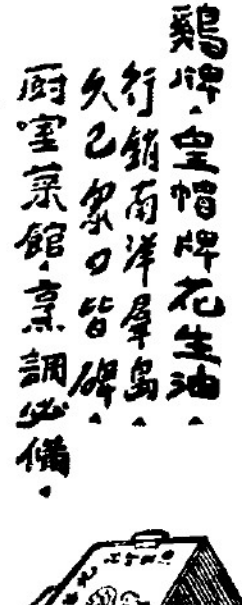 鷄牌、皇帽牌花生油、
行銷南洋羣島、
久已衆口皆碑、
厨室菜館、烹調必備、